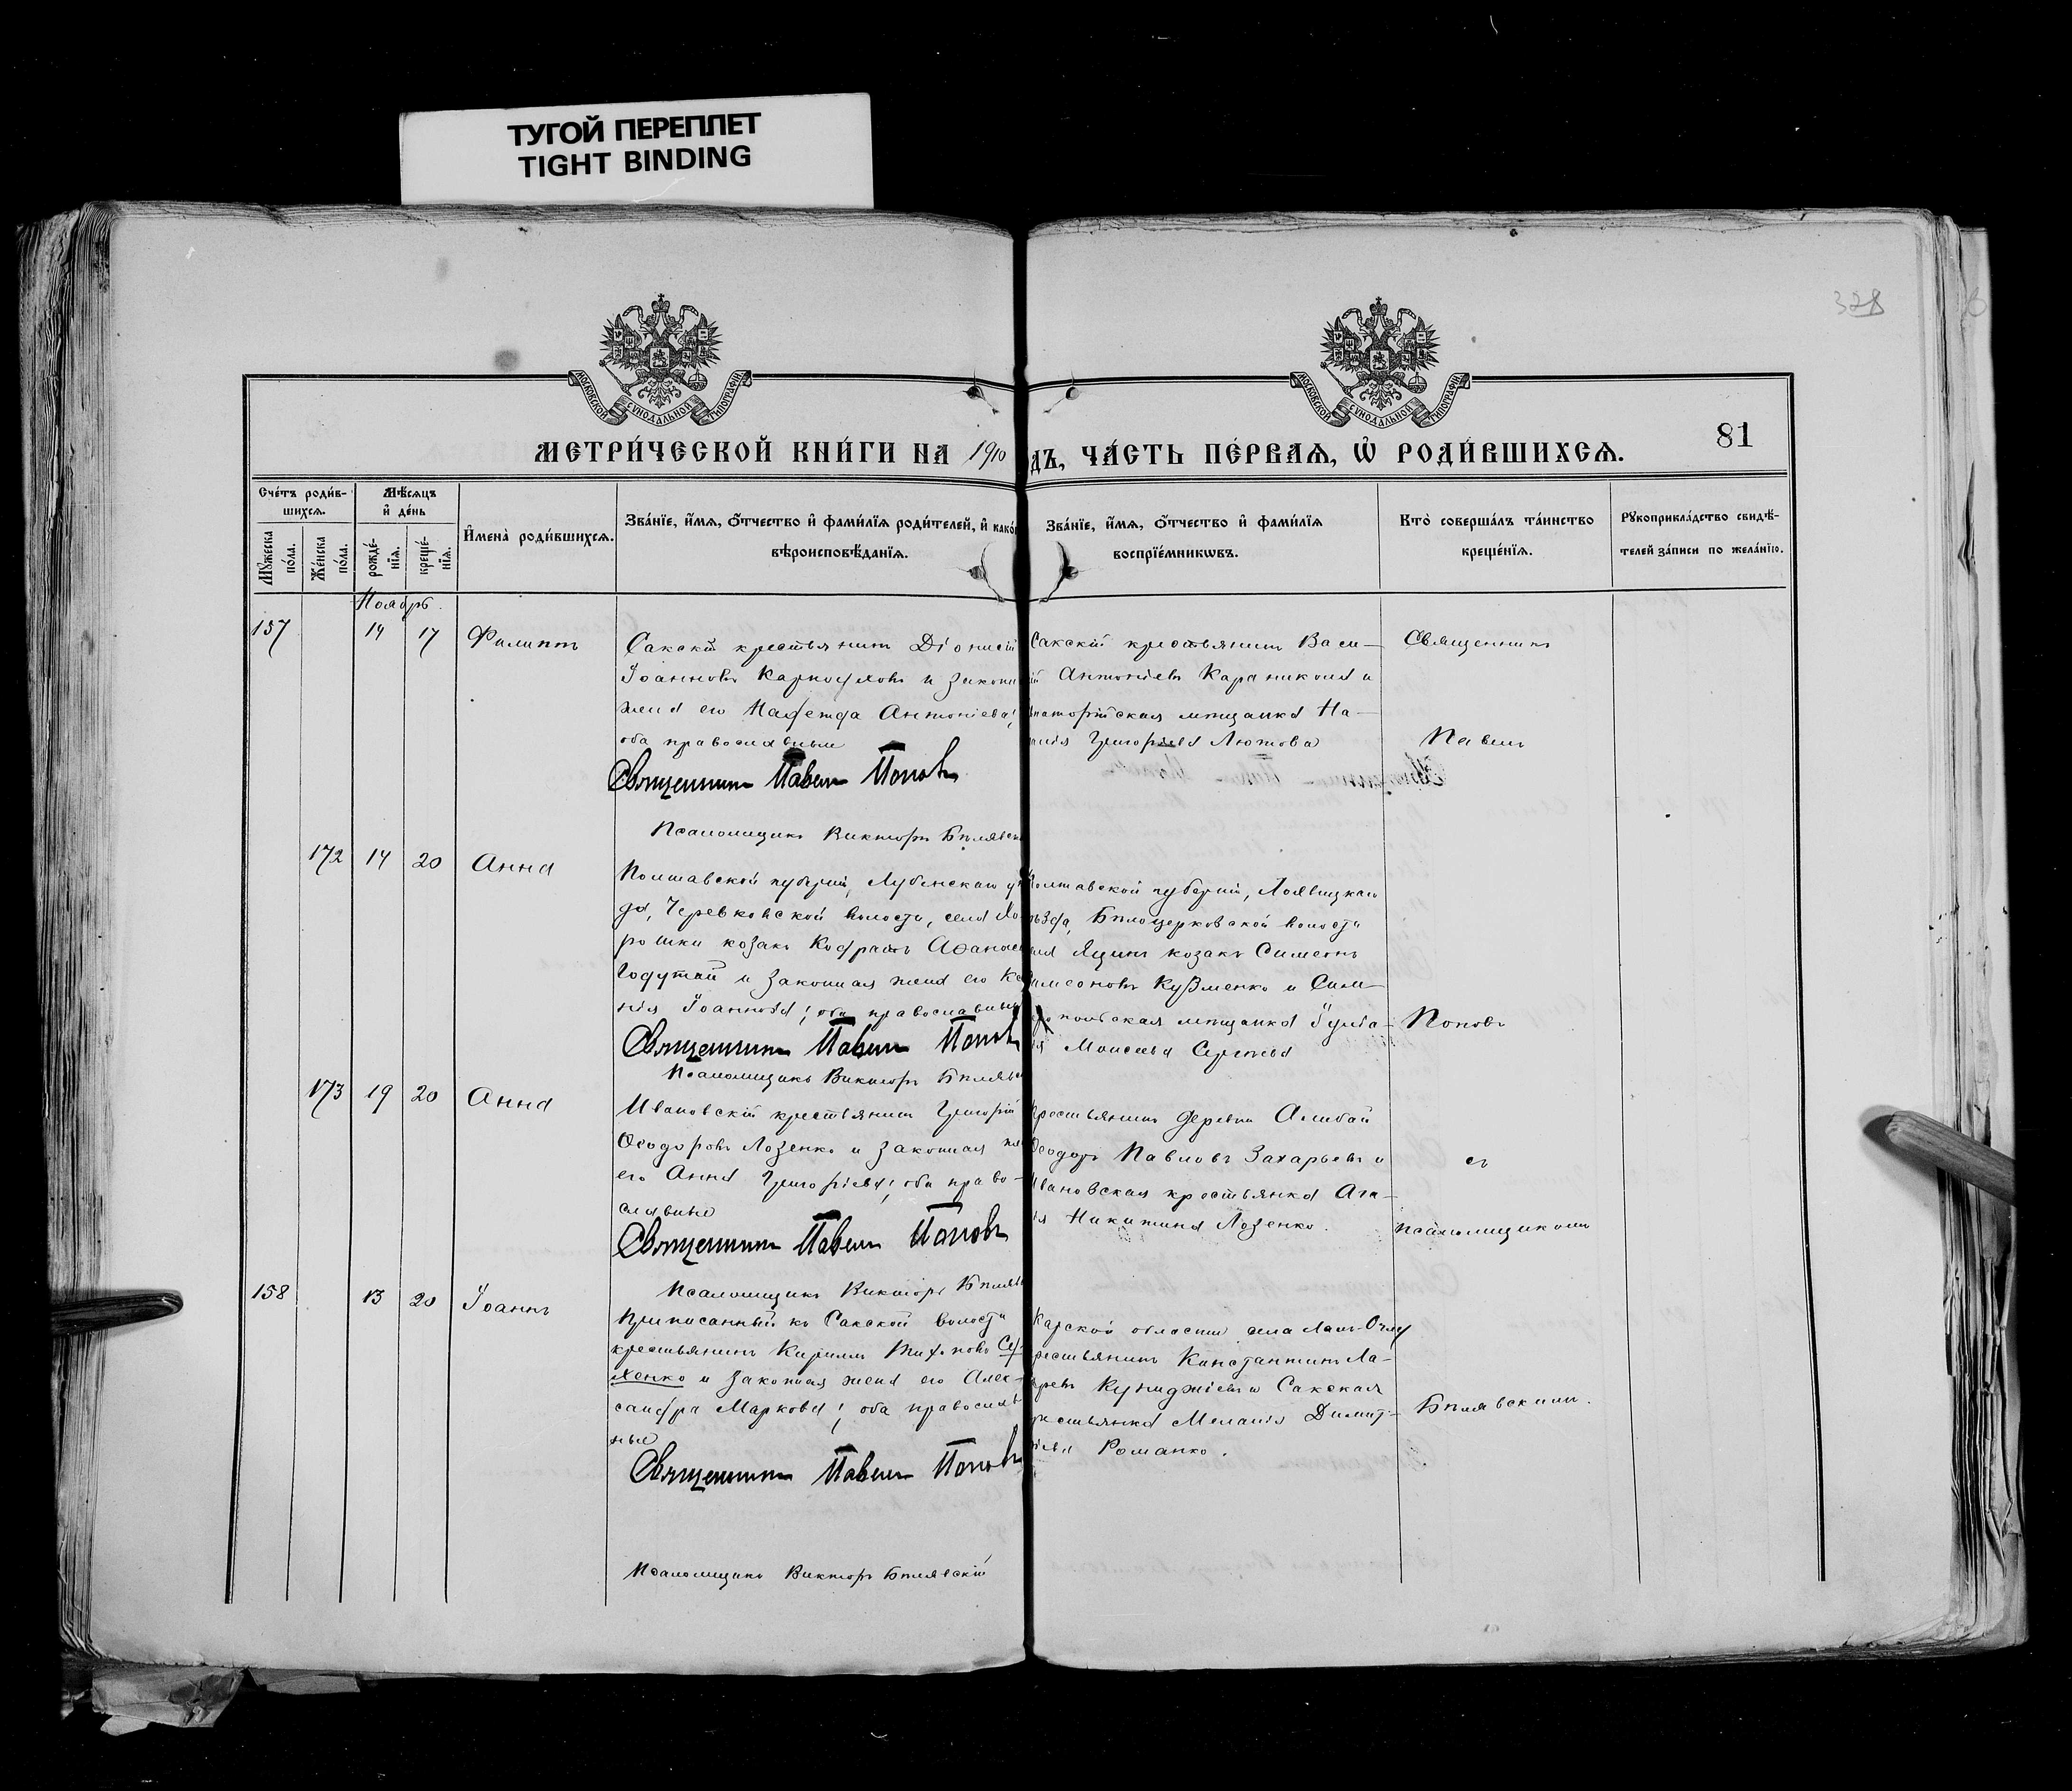 ТУГОЙ ПЕРЕПЛЕТ
TIGHT BINDING
328
МОСКОВСКОЙ СѴНОДАЛЬНОЙ ТИПОГРАФІИ
МОСКОВСКОЙ СѴНОДАЛЬНОЙ ТИПОГРАФІИ
81
МЕТРИ́ЧЕСКОЙ КНИ́ГИ НА 1910
ДЪ, ЧА́СТЬ ПЕ́РВАѦ, Ѡ҆ РОДИ́ВШИХСѦ.
Сче́тъ роди́в-
шихсѧ.
Мꙋ́жеска
по́ла.
Же́нска
по́ла.
Мѣ́сѧцъ
и҆ де́нь
рожде́-
нїѧ.
креще́-
нїѧ.
И҆мена̀ роди́вшихсѧ.
Зва́нїе, и҆́мѧ, ѻ҆́тчество и҆ фами́лїѧ роди́телей, и҆ како́
вѣроисповѣ́данїѧ.
Зва́нїе, и҆́мѧ, ѻ҆́тчество и҆ фами́лїѧ
воспрїе́мникѡвъ.
Кто̀ соверша́лъ та́инство
креще́нїѧ.
Рꙋкоприкла́дство свидѣ́-
телей за́писи по жела́нїю.
Ноябрь.
157
14
17
Филиппъ
Сакскій крестьянинъ Діонисій
Іоанновъ и закон
жена его Надежда Антоніева,
оба православные
Священникъ Павелъ Поповъ
Псаломщикъ Виктор Бѣлявск
Сакскій крестьянинъ Васи-
ій Антоніевъ Караникола и
впаторійская мѣщанка На-
Григорьева Лютова
Священникъ
Павелъ
172
14
20
Анна
Полтавской губерніи, Лубенскаго у
да, Черевковской волости, села Хо
рошки козакъ Кодратъ Аѳанас
и законная жена его Ксе
нія Іоаннова; оба православные
Священникъ Павелъ Поповъ
Псаломщикъ Викторъ Бѣлявс
олтавской губерніи, Лохвицкаго
ѣзда, Бѣлоцерковской волости
ела Яцинъ козакъ Симеонъ
имеоновъ Кузменко и Сим-
ропольская мѣщанка Іуліа-
ія Моисеева Сергѣева
Поповъ
173
19
20
Анна
Ивановскій крестьянинъ Григорій
Ѳеодоровъ Лозенко и законная же
его Анна Григорьева; оба право-
славные
Священникъ Павелъ Поповъ
Псаломщикъ Викторъ Бѣлявс
рестьянинъ деревни Алибай
Ѳеодоръ Павловъ Захарьевъ и
Ивановская крестьянка Ага-
ія Никитина Лозенко.
съ
псаломщикомъ
158
13
20
Іоаннъ
Приписанный къ Сакской волости
крестьянинъ Кириллъ Тихоновъ
и законная жена его Алек-
сандра Маркова; оба православ
ные
Священникъ Павелъ Поповъ
Псаломщикъ Викторъ Бѣлявскій
Карской области села
рестьянинъ Константинъ Ла-
аревъ и Сакская
рестьянка Меланія Димит-
іева Романко.
Бѣлявскимъ.